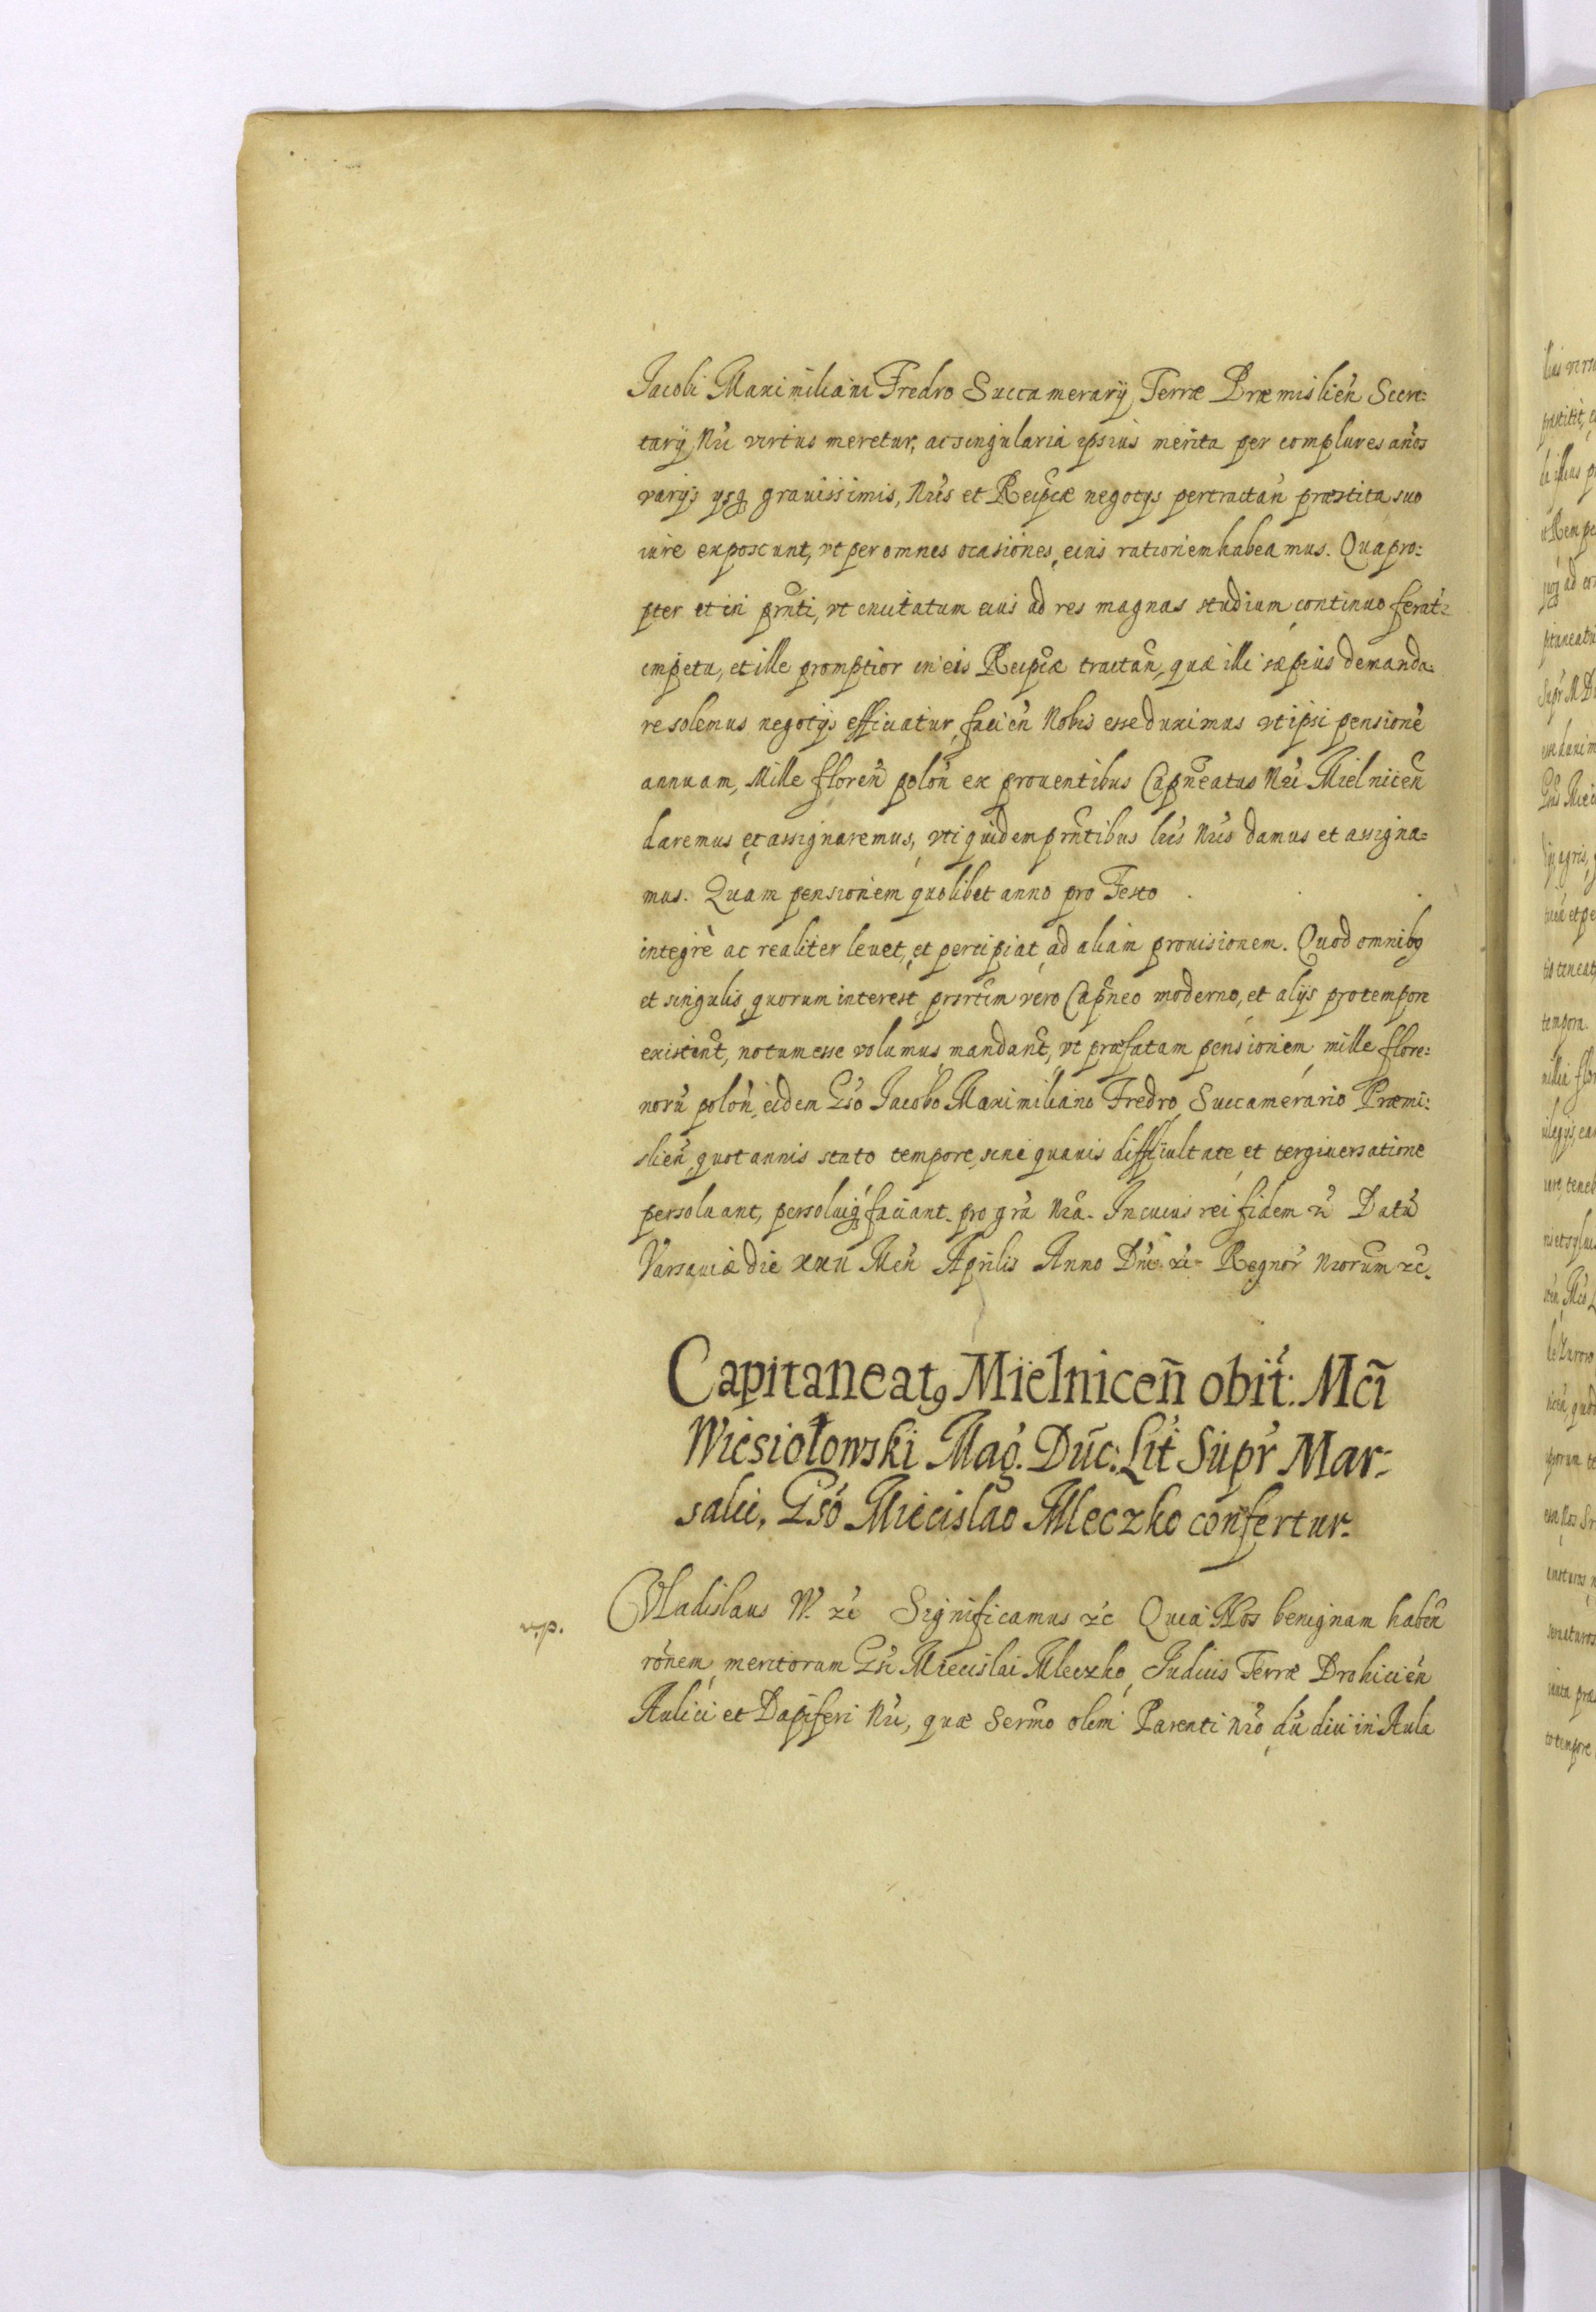 Jacobi Maximiliani Fredro Succamerarÿ Terræ Præmislien̄ Secre=
tarÿ Nri virtus meretur, ac singularia ipsius merita per complures an̄os
varÿs ÿsq grauissimis, Nris et Reipcæ negotÿs pertractan̄ præstita suo
iure exposcunt, vt per omnes ocasiones, eius rationem habeamus. Quapro=
pter et in prnti, vt incitatum eius ad res magnas studium, continuo ferat=
impetu, et ille promptior in eis Reipcæ tractan̄, quæ illi sæpius demanda=
re solemus negotÿs efficiatur, facien̄ Nobis esse duximus vt ipsi pensionē
annuam, Mille floren̄ polon̄ ex prouentibus Capneatus Nri Mielnicen̄
daremus et assignaremus, vti quidem prntibus lris Nris damus et assigna=
mus. Quam pensionem quolibet anno pro Festo . . .
integrè ac realiter leuet, et percipiat, ad aliam prouisionem. Quod omnibq
et singulis, quorum interest, prsrtim vero Capneo moderno, et alÿs pro tempore
existent, notum esse volumus mandant, vt præfatam pensionem, mille flore=
norū polon̄, eidem Gso Jacobo Maximiliano Fredro, Succamerario Præmi=
slien̄, quotannis stato tempore, sine quauis difficultate, et tergiuersatione
persoluant, persoluiq faciant. pro gra Nra. In cuius rei fidem rc̄ Datū
Varsauiæ die xxii Men̄ Aprilis Anno Dni rc̄ Regnor̄ Nrorum rc̄.
Capitaneatq Mielnicen̄ obit: Mci
Wiesiołowski Mag. Duc: Lit Supr Mar=
salci, Gso Miecislao Mleczko confertur.
v.p.
Vladislaus IV. rc̄ Significamus rc̄ Quia Nos benignam haben̄
rōnem, meritorum Gsi Miecislai Mleczko, Judicis Terræ Drohicien̄
Aulici et Dapiferi Nri, quæ Sermo olim Parenti Nro, dū diu in Aula